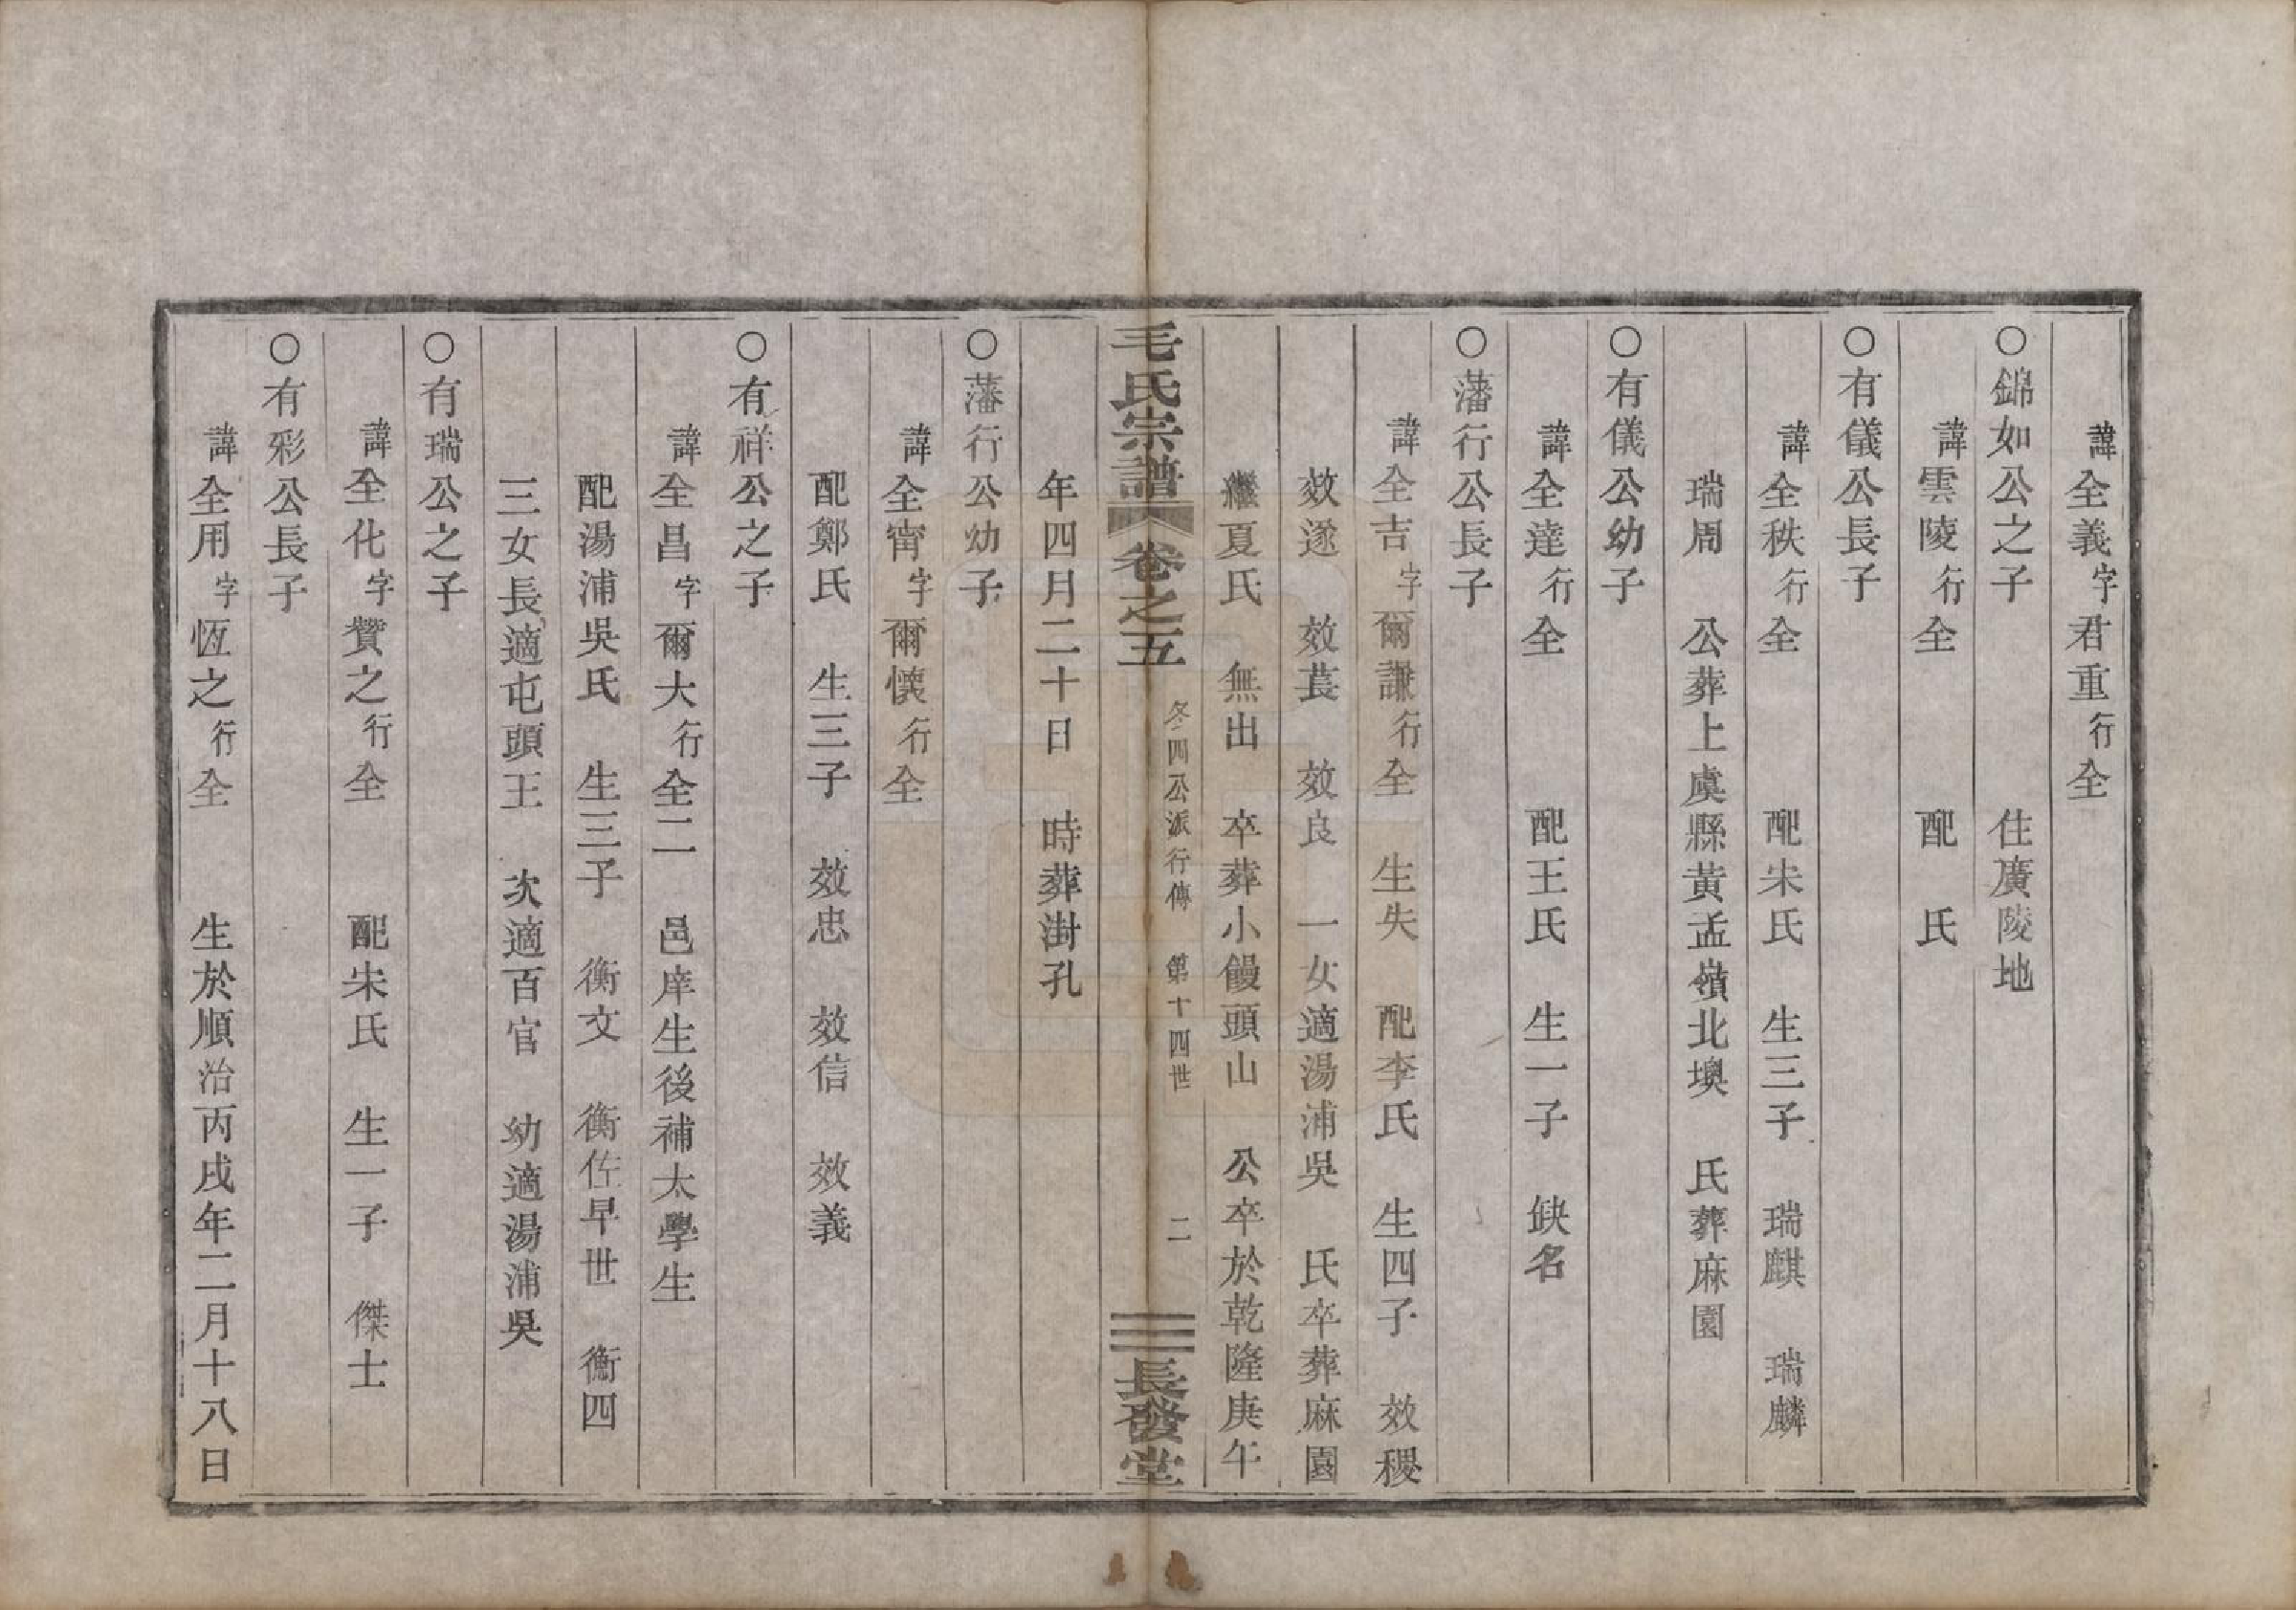 諱全義字君重行全
〇錦如公之子　住廣陵地
諱雲陵行全　配　氏
〇有儀公長子
諱全秩行全　配朱氏　生三子　瑞麒　瑞麟
瑞周　公葬上虞縣黃孟嶺北墺　氏葬麻園
〇有儀公幼子
諱全達行全　配王氏　生一子　缺名
〇藩行公長子
諱全吉字爾謙行全　生失　配李氏　生四子　效稷
效遂　效萇　效良　一女適湯浦吳　氏卒葬麻園
繼夏氏　無出　卒葬小饅頭山　公卒於乾隆庚午
毛氏宗譜　卷之五　冬四公派行傳　第十四世　二　長發堂
年四月二十日　時葬澍孔
〇藩行公幼子
諱全甯字爾懷行全
配鄭氏　生三子　效忠　效信　效義
〇有祥公之子
諱全昌字爾大行全二　邑庠生後補太學生
配湯浦吳氏　生三子　衡文　衡佐早世　衡四
三女長適屯頭王　次適百官　幼適湯浦吳
〇有瑞公之子
諱全化字贊之行全　配朱氏　生一子　傑士
〇有彩公長子
諱全用字恆之行全　生於順治丙戌年二月十八日